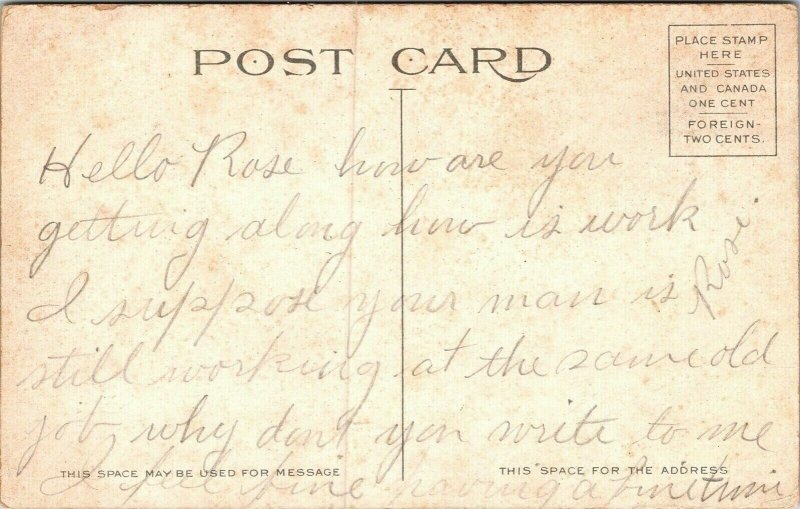 POST CARD
PLACE STAMP
HERE
UNITED STATES
AND CANADA
ONE CENT
FOREIGN-
TWO CENTS.
Hello Rose how are you
getting along how is work
I suppose your man is
still working at the same old
job, why don't you write to me
I feel fine having a fine time
Rose.
THIS SPACE MAY BE USED FOR MESSAGE
THIS SPACE FOR THE ADDRESS